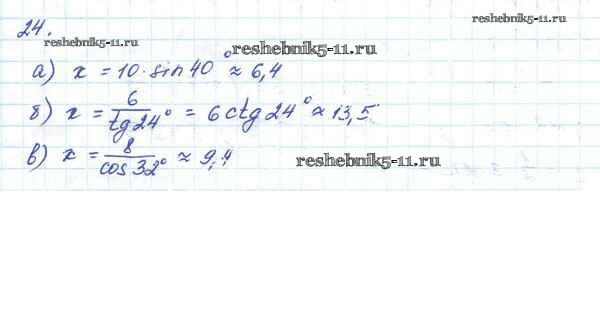 24.
reshebnik5-11.ru
reshebnik5-11.ru
reshebnik5-11.ru
а) x = 10·sin 40° ≈ 6,4
б) x = 6/tg 24° = 6 ctg 24° ≈ 13,5
в) x = 8/cos 32° ≈ 9,4
reshebnik5-11.ru